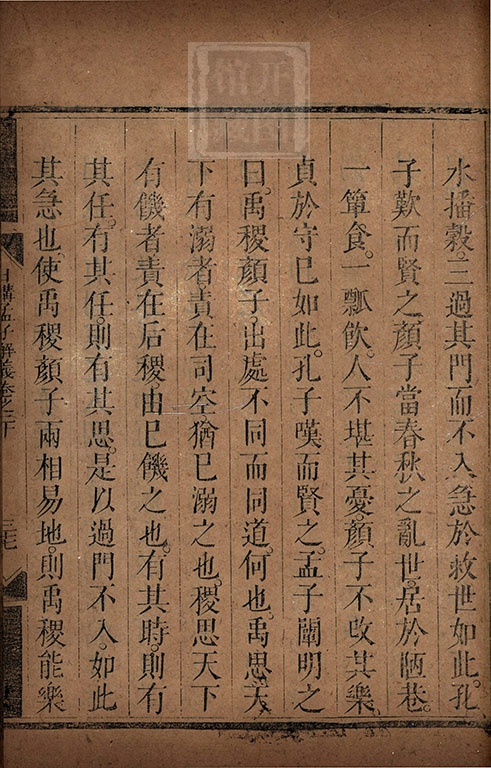 水播穀三過其門而不入急於救世如此孔
子歎而賢之顏子當春秋之亂世居於陋巷
一簞食一瓢飲人不堪其憂顏子不改其樂
貞於守己如此孔子嘆而賢之孟子闡明之
曰禹稷顏子出處不同而同道何也禹思天
下有溺者責在司空猶己溺之也稷思天下
有饑者責在后稷由己饑之也有其時則有
其任有其任則有其思是以過門不入如此
其急也使禹稷顏子兩相易地則禹稷能樂
日講孟子解義卷之二十 三七